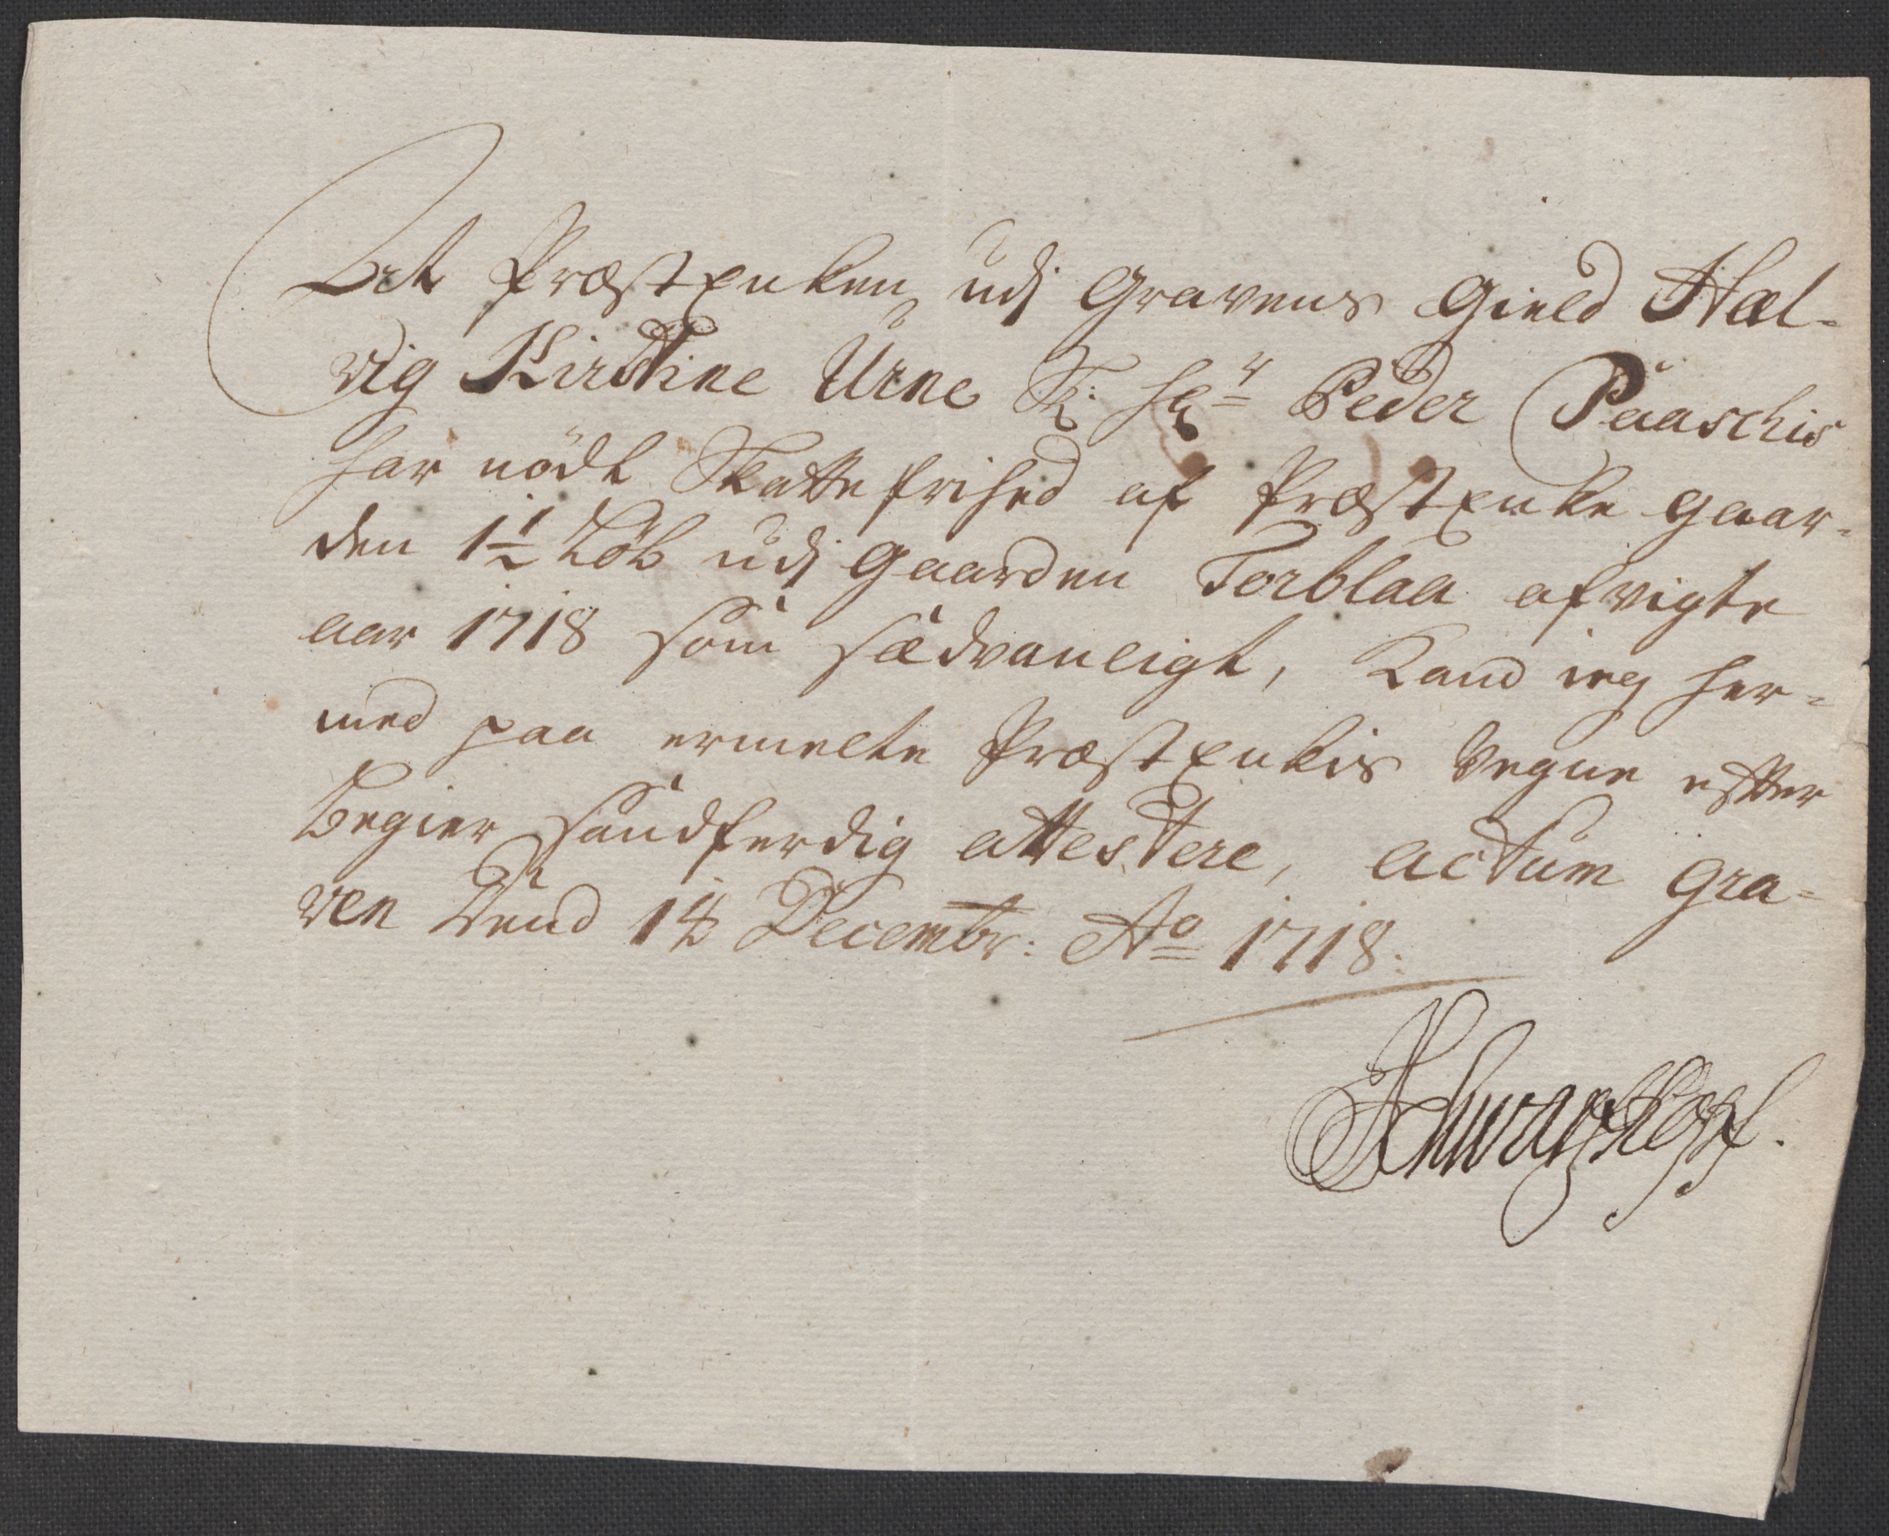 At Præst Enken udj Gravens Gield Hæl-
vig Kirstine Urne S: Hr Peder Paaschis
har nødt Skatte frihed af Præst Enke gaar-
den 1½ Løb udj Gaarden Torblaa afvigte
aar 1718 som sædvanligt, Kand ieg her-
med paa ermelte Præst Enkis Vegne efter
Begier sandferdig attestere, actum Gra-
ven Dend 14 Decembr: Ao 1718:
Schwartzkopf.